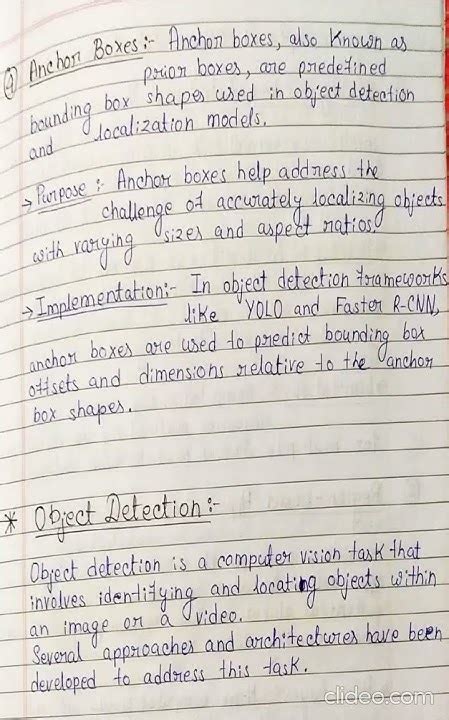 9 Anchor Boxes:- Anchor boxes, also known as
prior boxes, are predefined
bounding box shapes used in object detection
and localization models.
→ Purpose:- Anchor boxes help address the
challenge of accurately localizing objects
with varying sizes and aspect ratios.
→ Implementation:- In object detection frameworks
like YOLO and Faster R-CNN,
anchor boxes are used to predict bounding box
offsets and dimensions relative to the anchor
box shapes.
* Object Detection:-
Object detection is a computer vision task that
involves identifying and locating objects within
an image or a video.
Several approaches and architectures have been
developed to address this task.
clideo.com